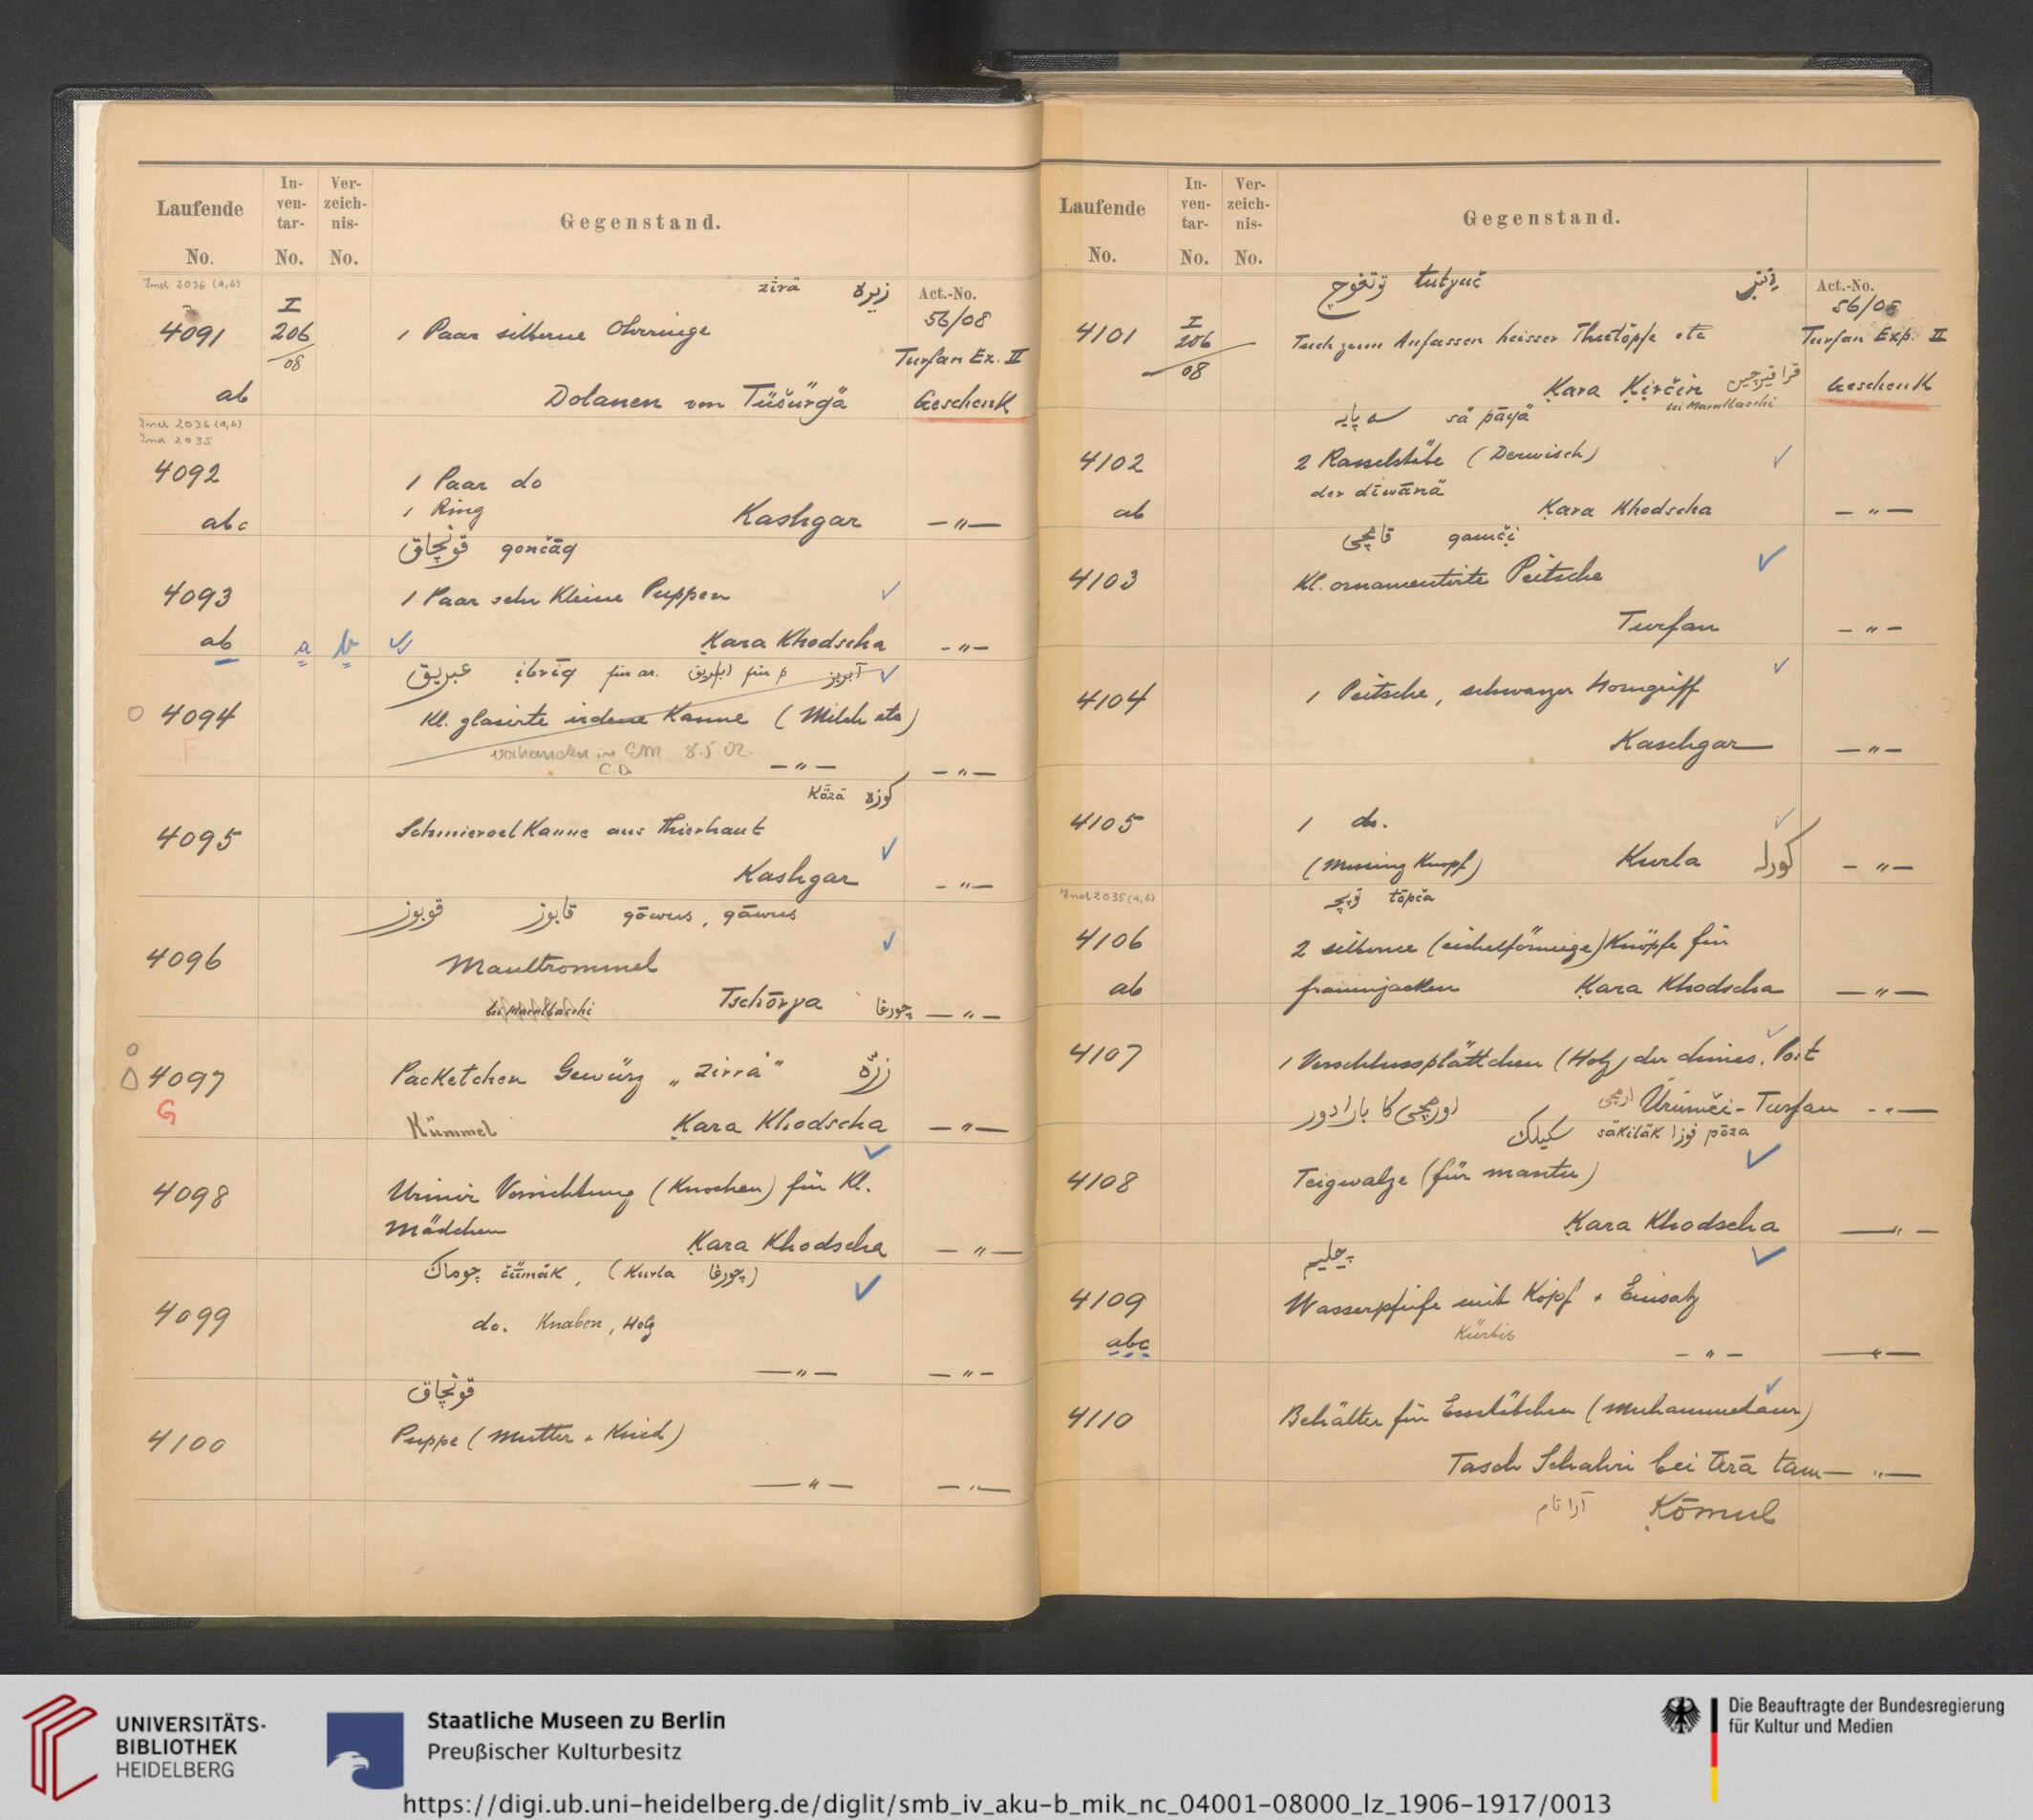 Laufende No.
In-ven-tar-No.
Ver-zeich-nis-No.
Gegenstand.
Act.-No.
zirä زيره
56/08
4091
I 206/08
1 Paar silberne Ohrringe
Turfan Ex. II
ab
Dolanen von Tüšürgä
Geschenk
4092
1 Paar do
1 Ring
abc
Kashgar
— " —
قونچاق qončāq
4093
1 Paar sehr kleine Puppen
ab
a b
Kara Khodscha
- " -
عبريق ibrīq für ar. ابريق für p آبريز
4094
Kl. glasirte irdene Kanne (Milch etc)
F
vorhanden in
C.D.
— " —
— " —
Közä كوزه
4095
Schmieroel Kanne aus Thierhaut
Kashgar
- " —
قوبوز قابوز qōwus, qāwus
4096
Maultrommel
bei Maralbaschi
Tschōrγa چورغا
— " —
4097
Packetchen Gewürz „Zirrä" زرّه
G
Kümmel
Kara Khodscha
— " —
4098
Urinir Vorrichtung (Knochen) für Kl.
Mädchen
Kara Khodscha
— " —
چوماك čümäk, (Kurla چورغا)
4099
do. Knaben, Holz
— " —
— " —
قونچاق
4100
Puppe (Mutter + Kind)
— " —
— " —
Laufende No.
In-ven-tar-No.
Ver-zeich-nis-No.
Gegenstand.
Act.-No.
توتغوچ tutγuč
56/08
4101
I 206/08
Tuch zum Anfassen heisser Theetöpfe etc
Turfan Exp. II
Kara Kirčin قراقيرچين
bei Maralbaschi
Geschenk
سه پايه sä pāyä
4102
2 Rasselstäbe (Derwisch)
der dīwānä
ab
Kara Khodscha
— " —
قامچى qamči
4103
Kl. ornamentirte Peitsche
Turfan
— " —
4104
1 Peitsche, schwarzer Horngriff
Kaschgar
— " —
4105
1 do.
(Messing Knopf)
Kurla كورله
— " —
töpčä
4106
2 silberne (eichelförmige) Knöpfe für
ab
frauenjacken
Kara Khodscha
— " —
4107
1 Verschlussplättchen (Holz) der chines. Post
اورمچى كا بارادور
Ürümči - Turfan
- " —
säkiläk pōza
4108
Teigwalze (für mantu)
Kara Khodscha
— " —
چيليم
4109
Wasserpfeife mit Kopf + Einsatz
Kürbis
abc
— " —
— " —
4110
Behälter für Essstäbchen (Muhammedaner)
Tasch Schahri bei Ara tam
— " —
آرا تام
Kōmul
UNIVERSITÄTS-
BIBLIOTHEK
HEIDELBERG
Staatliche Museen zu Berlin
Preußischer Kulturbesitz
Die Beauftragte der Bundesregierung
für Kultur und Medien
https://digi.ub.uni-heidelberg.de/diglit/smb_iv_aku-b_mik_nc_04001-08000_lz_1906-1917/0013